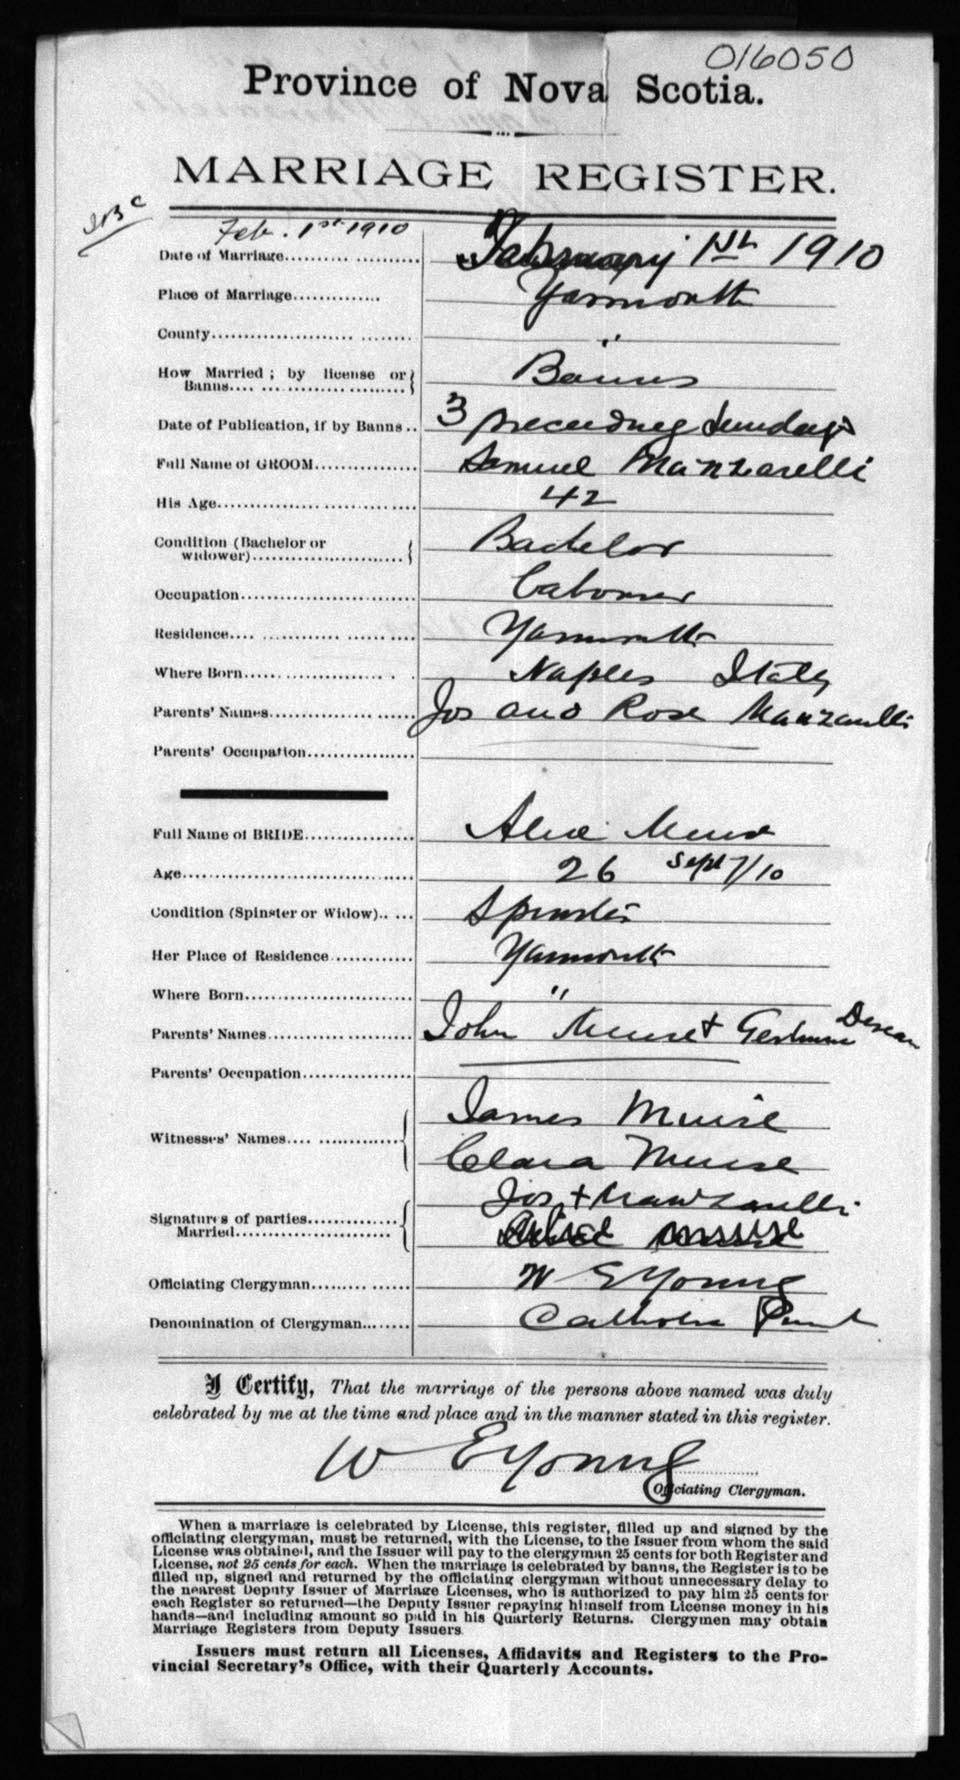 016050
Province of Nova Scotia.
MARRIAGE REGISTER.
Feb. 1st 1910
Date of Marriage.......... .......... February 1st 1910
Place of Marriage.............. Yarmouth
County...................... ......... "
How Married ; by license or Banns.... .... ................ .......... Banns
Date of Publication, if by Banns .. 3 preceeding Sundays
Full Name of GROOM................. Samuel Manzarelli
His Age................................ 42
Condition (Bachelor or widower)......................... Bachelor
Occupation............................ Labourer
Residence.... ............ ...... ...... Yarmouth
Where Born.... ................. . Naples Italy
Parents' Names................ ....... Jos and Rose Manzarelli
Parents' Occupation.................
Full Name of BRIDE................. Alice Muise
Age.................................... 26 Sept 7/10
Condition (Spinster or Widow).. .... Spinster
Her Place of Residence............. Yarmouth
Where Born.......................... "
Parents' Names....................... John Muise + Gertrude
Parents' Occupation.................
Witnesses' Names.... ............... James Muise
Clara Muise
Signatures of parties............... Married......................... Jos + Manzarelli
Alice Muise
Officiating Clergyman........ ...... W E Young
Denomination of Clergyman......... Catholic Priest
I Certify, That the marriage of the persons above named was duly
celebrated by me at the time and place and in the manner stated in this register.
W E Young
Officiating Clergyman.
When a marriage is celebrated by License, this register, filled up and signed by the
officiating clergyman, must be returned, with the License, to the Issuer from whom the said
License was obtained, and the Issuer will pay to the clergyman 25 cents for both Register and
License, not 25 cents for each. When the marriage is celebrated by banns, the Register is to be
filled up, signed and returned by the officiating clergyman without unnecessary delay to
the nearest Deputy Issuer of Marriage Licenses, who is authorized to pay him 25 cents for
each Register so returned—the Deputy Issuer repaying himself from License money in his
hands—and including amount so paid in his Quarterly Returns. Clergymen may obtain
Marriage Registers from Deputy Issuers
Issuers must return all Licenses, Affidavits and Registers to the Pro-
vincial Secretary's Office, with their Quarterly Accounts.